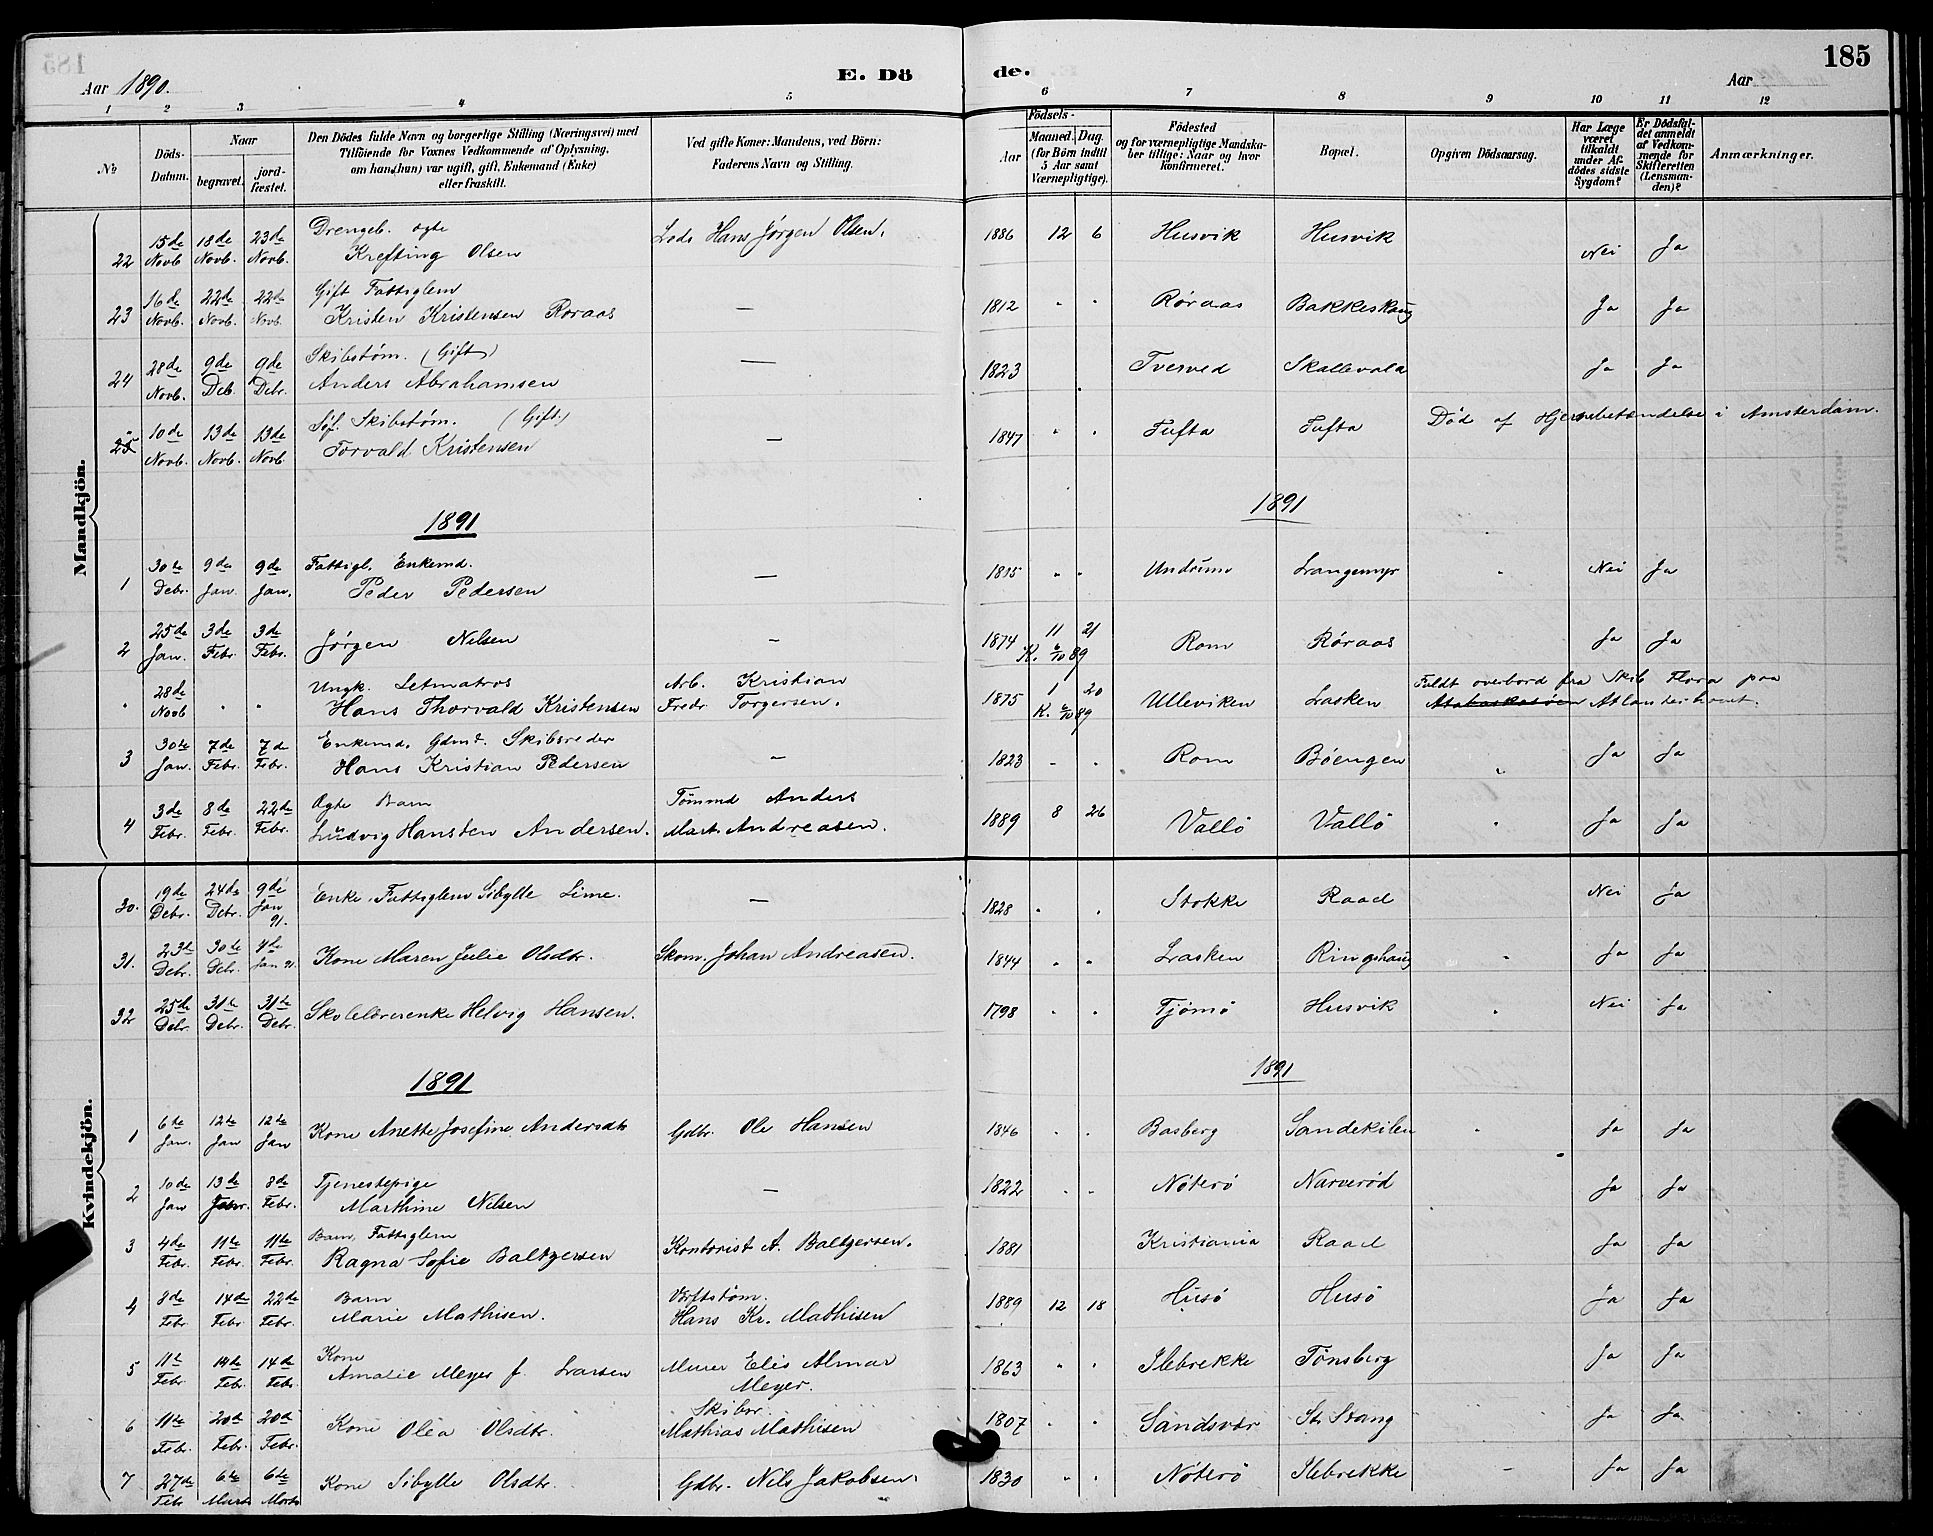 185
Aar 1890.
E. Dö
de.
Aar
1 2 3 4 5 6 7 8 9 10 11 12
No
Döds-Datum.
Naar
begravet.
jord-fæstet.
Den Dödes fulde Navn og borgerlige Stilling (Næringsvei) med
Tilföiende for Voxnes Vedkommende af Oplysning,
om han (hun) var ugift, gift, Enkemand (Enke)
eller fraskilt.
Ved gifte Koner: Mandens, ved Börn:
Faderens Navn og Stilling.
Födsels-
Aar
Maaned. Dag.
(for Börn indtil
5 Aar samt
Værnepligtige).
Födested
og for værnepligtige Mandska-
ber tillige: Naar og hvor
konfirmeret.
Bopæl.
Opgiven Dödsaarsag.
Har Læge
været
tilkaldt
under Af-
dödes sidste
Sygdom?
Er Dödsfal-
det anmeldt
af Vedkom-
mende for
Skifteretten
(Lensman-
den)?
Anmærkninger.
Mandkjön.
22 15de Novb 18de Novb. 23de Novb. Drengeb. ægte Krefting Olsen Lods Hans Jørgen Olsen. 1886 12 6 Husvik Husvik Nei Ja
23 16de Novb. 22de Novb. 22de Novb. Gift Fattiglem Kristen Kristensen Roraas — 1812 " " Røraas Bakkeskaug Ja Ja
24 28de Novb. 9de Deb. 9de Debr. Skibstøm. (Gift) Anders Abrahamsen — 1823 Tverved Skallevold Ja Ja
25 10de Novb. 13de Novb. 13de Novb. Søf. Skibstøm. (Gift.) Torvald Kristensen — 1847 " " Tufta Tufta Død af Hjernebetændelse i Amsterdam.
1891
1891
1 30te Debr. 9de Jan. 9de Jan. Fattigl. Enkemd. Peder Pedersen — 1815 " " Undrum Langemyr " Nei Ja
2 25de Jan. 3de Febr. 3de Febr. Jørgen Nilsen — 1874 11 21 K. 6/10 89 Rom Røraas Ja Ja
" 28de Novb " " Ungk. Letmatros Hans Thorvald Kristensen Arb. Kristian Fredr Torgersen. 1875 1 20 K. 6/10 89 Ulleviken Lasken Faldt overbord fra Skib Flora paa Atlanterhavet.
3 30te Jan. 7de Febr. 7de Febr. Enkemd. Gdmd. Skibsreder Hans Kristian Pedersen — 1823 - . Rom Böengen " Ja Ja
4 3de Febr. 8de Febr. 22de Febr. Ægte Barn Ludvig Hansten Andersen. Tømmd Anders Mart. Andreasen. 1889 8 26 Vallö Vallö " Ja Ja
Kvindekjön.
30. 19de Debr. 24de Debr. 9de Jan 91. Enke, Fattiglem Sibylle Lime. — 1828 " " Stokke Raael Nei Ja
31. 23de Debr. 30te Debr. 4de Jan 91. Kone Maren Julie Olsdtr. Skom. Johan Andreasen. 1844 " " Lasken Ringshaug " Ja Ja
32 25de Debr. 31te Debr. 31te Debr. Skolelærerenke Helvig Hansen. 1798 " " Tjømø Husvik " Nei Ja
1891
1891
1 6te Jan. 12te Jan 12te Jan Kone Anette Josefine Andersdtr Gdbr. Ole Hansen 1846 . . Basberg Sandekilen " Ja Ja
2 10de Jan 13de Janr. 8de Febr. Tjenestepige Marthine Nilsen — 1822 " " Nöterö Narveröd Ja Ja
3 4de Febr. 11te Febr. 11te Febr. Barn, Fattiglem Ragna Sofie Baltzersen Kontorist A. Baltzersen. 1881 Kristiania Raael Ja Ja
4 8de Febr 14de Febr 22de Febr. Barn Marie Mathisen. Verftstøm. Hans Kr. Mathisen 1889 12 18 Husö Husö Ja Ja
5 11te Febr. 14de Febr. 14de Febr. Kone Amalie Meyer f. Larsen Murer Elis Almar Meyer. 1863 " " Ilebrekke Tönsberg Ja Ja
6 11te Febr. 20de Febr. 20de Febr. Kone Olea Olsdtr. Skibsr. Mathias Mathisen 1807 " " Sandsvær St. Stang Ja Ja
7 27de Febr 6te Marts 6te Marts Kone Sibylle Olsdtr. Gdbr. Nils Jakobsen. 1830 " " Nöterö Ilebrekke — Ja Ja